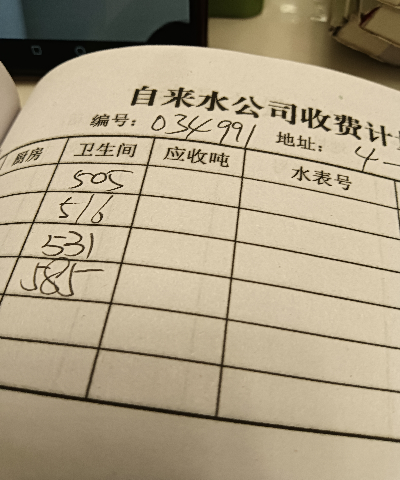 自来水公司收费计
编号: 034991 地址: 4-
厨房 卫生间 应收吨 水表号
505
516
531
585